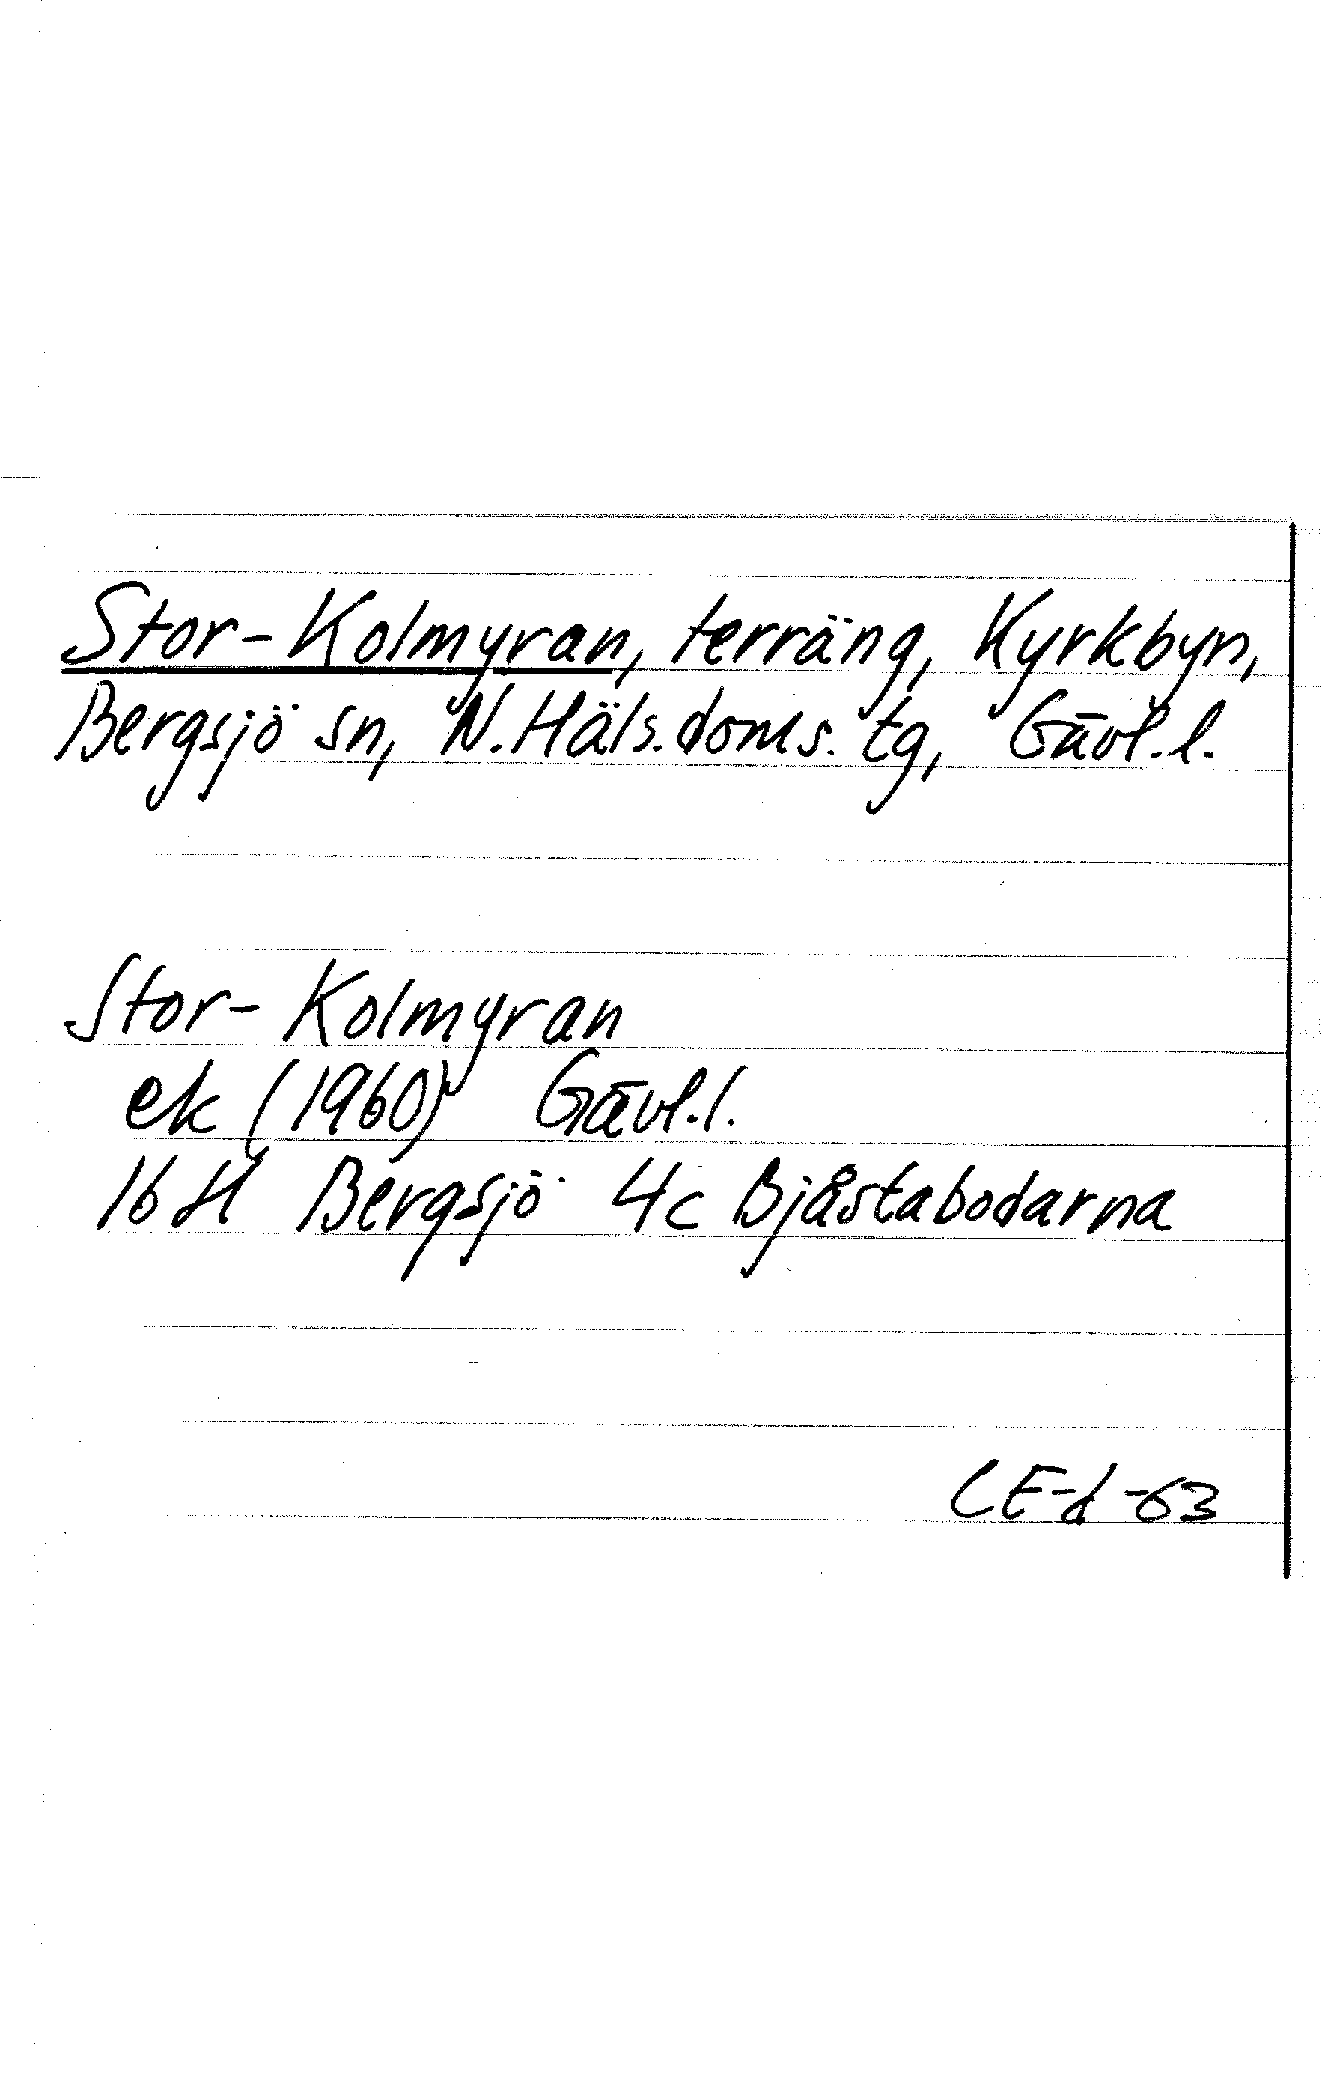 Stor-Kolmyran, terräng, Kyrkbyn,
Bergsjö sn, N.Häls.doms.tg, Gävl.l.
Stor-Kolmyran
ek (1960) Gävl.l.
16H Bergsjö 4c Bjåstabodarna
CE-d-63